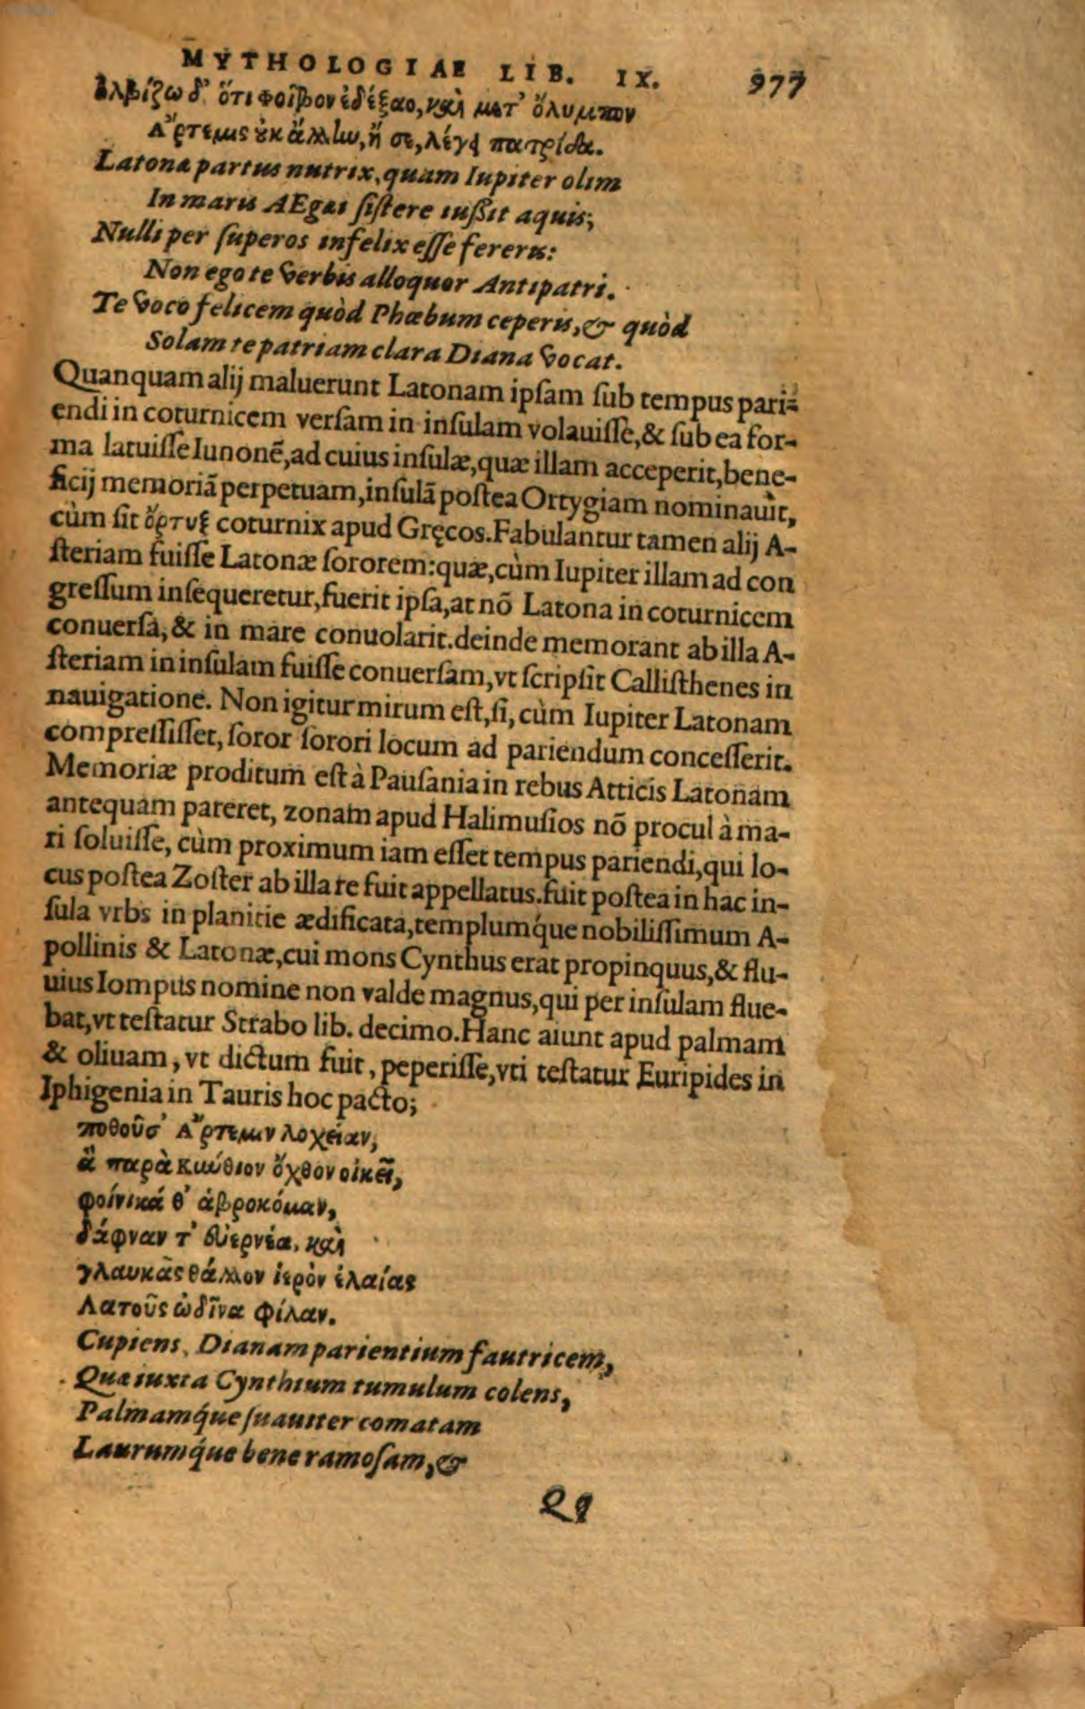 MYTHOLOGIAE LIB. IX. 977
ὀλβίζω δ' ὅτι φοῖβον ἐδέξαο, καὶ μετ' ὄλυμπον
Ἄρτεμις οὐκ ἄλλην, ἤ σε, λέγει πατρίδα.
Latonæ partus nutrix, quam Iupiter olim
In maris AEgæi sistere iußit aquis;
Nulli per superos infelix esse fereris:
Non ego te verbis alloquor Antipatri.
Te voco felicem quòd Phœbum ceperis, & quòd
Solam te patriam clara Diana vocat.
Quanquam alij maluerunt Latonam ipsam sub tempus pari-
endi in coturnicem versam in insulam volauisse, & sub ea for-
ma latuisse Iunonẽ, ad cuius insulæ, quæ illam acceperit, bene-
ficij memoriã perpetuam, insulã postea Ortygiam nominauit,
cùm sit ὄρτυξ coturnix apud Gręcos. Fabulantur tamen alij A-
steriam fuisse Latonæ sororem: quæ, cùm Iupiter illam ad con
gressum insequeretur, fuerit ipsa, at nõ Latona in coturnicem
conuersa, & in mare conuolarit. deinde memorant ab illa A-
steriam in insulam fuisse conuersam, vt scripsit Callisthenes in
nauigatione. Non igitur mirum est, si, cùm Iupiter Latonam
compressisset, soror sorori locum ad pariendum concesserit.
Memoriæ proditum est à Pausania in rebus Atticis Latonam
antequam pareret, zonam apud Halimusios nõ procul à ma-
ri soluisse, cùm proximum iam esset tempus pariendi, qui lo-
cus postea Zoster ab illa re fuit appellatus. fuit postea in hac in-
sula vrbs in planitie ædificata, templumq́ue nobilissimum A-
pollinis & Latonæ, cui mons Cynthus erat propinquus, & flu-
uius Iompus nomine non valde magnus, qui per insulam flue-
bat, vt testatur Strabo lib. decimo. Hanc aiunt apud palmam
& oliuam, vt dictum fuit, peperisse, vti testatur Euripides in
Iphigenia in Tauris hoc pacto;
ποθοῦσ' Ἄρτεμιν λοχείαν,
ἃ παρὰ κύνθιον ὄχθον οἰκεῖ,
φοίνικά θ' ἁβροκόμαν,
δάφναν τ' εὐερνέα, καὶ
γλαυκᾶς θάλλον ἱερὸν ἐλαίας
Λατοῦς ὠδῖνα φίλαν.
Cupiens, Dianam parientium fautricem,
Quæ iuxta Cynthium tumulum colens,
Palmamq́ue suauiter comatam
Laurumq́ue bene ramosam, &
Qq